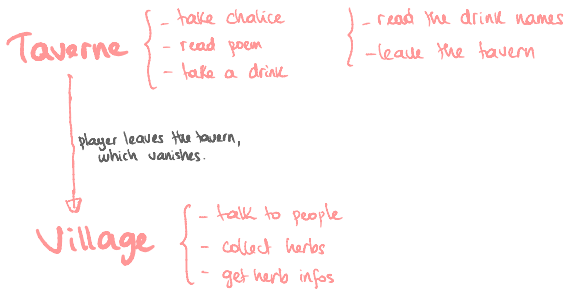 Taverne
- take chalice
- read poem
- take a drink
- read the drink names
- leave the tavern
player leaves the tavern,
which vanishes.
Village
- talk to people
- collect herbs
- get herb infos